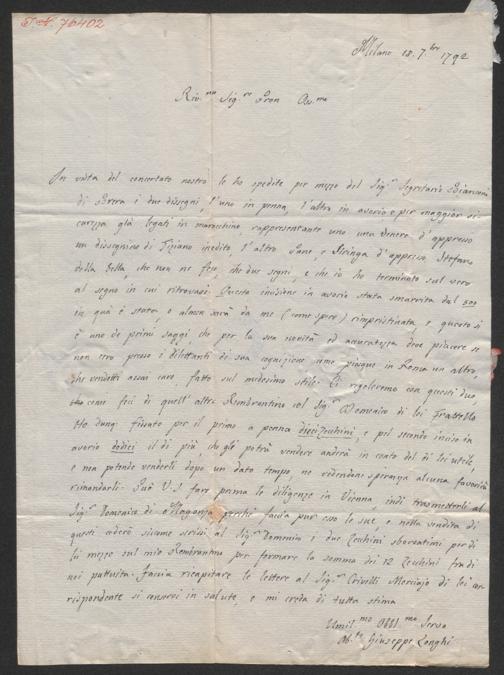 T.A. 76402
Milano 18. 7.bre 1792
Riv.mo Sig.re Pron Os.mo
In vista del concertato nostro le ho spedite per mezzo del Sig.r Segretario Bianconi
di Brera i due dissegni, l'uno in penna, l'altro in avorio e per maggior si-
curezza già legati in marocchino, rappresentante uno una Venere d'appresso
un dissegnino di Tiziano inedito, l'altro Pane, e Siringa d'appresso Stefano
della Bella, che non ne fece, che due segni, e che io ho terminato sul vero
al segno in cui ritrovasi. Questa incisione in avorio stata smarrita dal 500
in quà è stata, o almen sarà da me (come spero) rimpristinata, e questo si
è uno de primi saggi, che per la sua novità ed accuratezza deve piacere se
non erro presso i dilettanti di sua cognizione come piacque in Roma un altro,
che vendetti assai caro, fatto sul medesimo stile. Ci regoleremo con questi due,
come feci di quell'altro Rembrantino col Sig.r Domenico di lei Fratello
Ho dunq. fissato per il primo a penna dieci Zecchini, e pel secondo inciso in
avorio dodici il di più, che gli potrà vendere anderà in conto del di lei utile,
e non potendo venderli dopo un dato tempo ne vedendone speranza alcuna favorirà
rimandarli. Può V.S. fare prima le diligenze in Vienna, indi trasmetterli al
Sig.r Domenico di perchè faccia pur esso le sue, e nella vendita di
questi cederò siccome scrissi al Sig.r Domenico i due Zecchini sborsatimi per di
lei mezzo sul mio Rembrantino per formare la somma dei 12 Zecchini fra di
noi pattuita. Faccia ricapitare le lettere al Sig.r Crivelli Merciajo di lei cor-
rispondente si conservi in salute, e mi creda di tutta stima
Umil.mo Obbl.mo Servo
Giuseppe Longhi